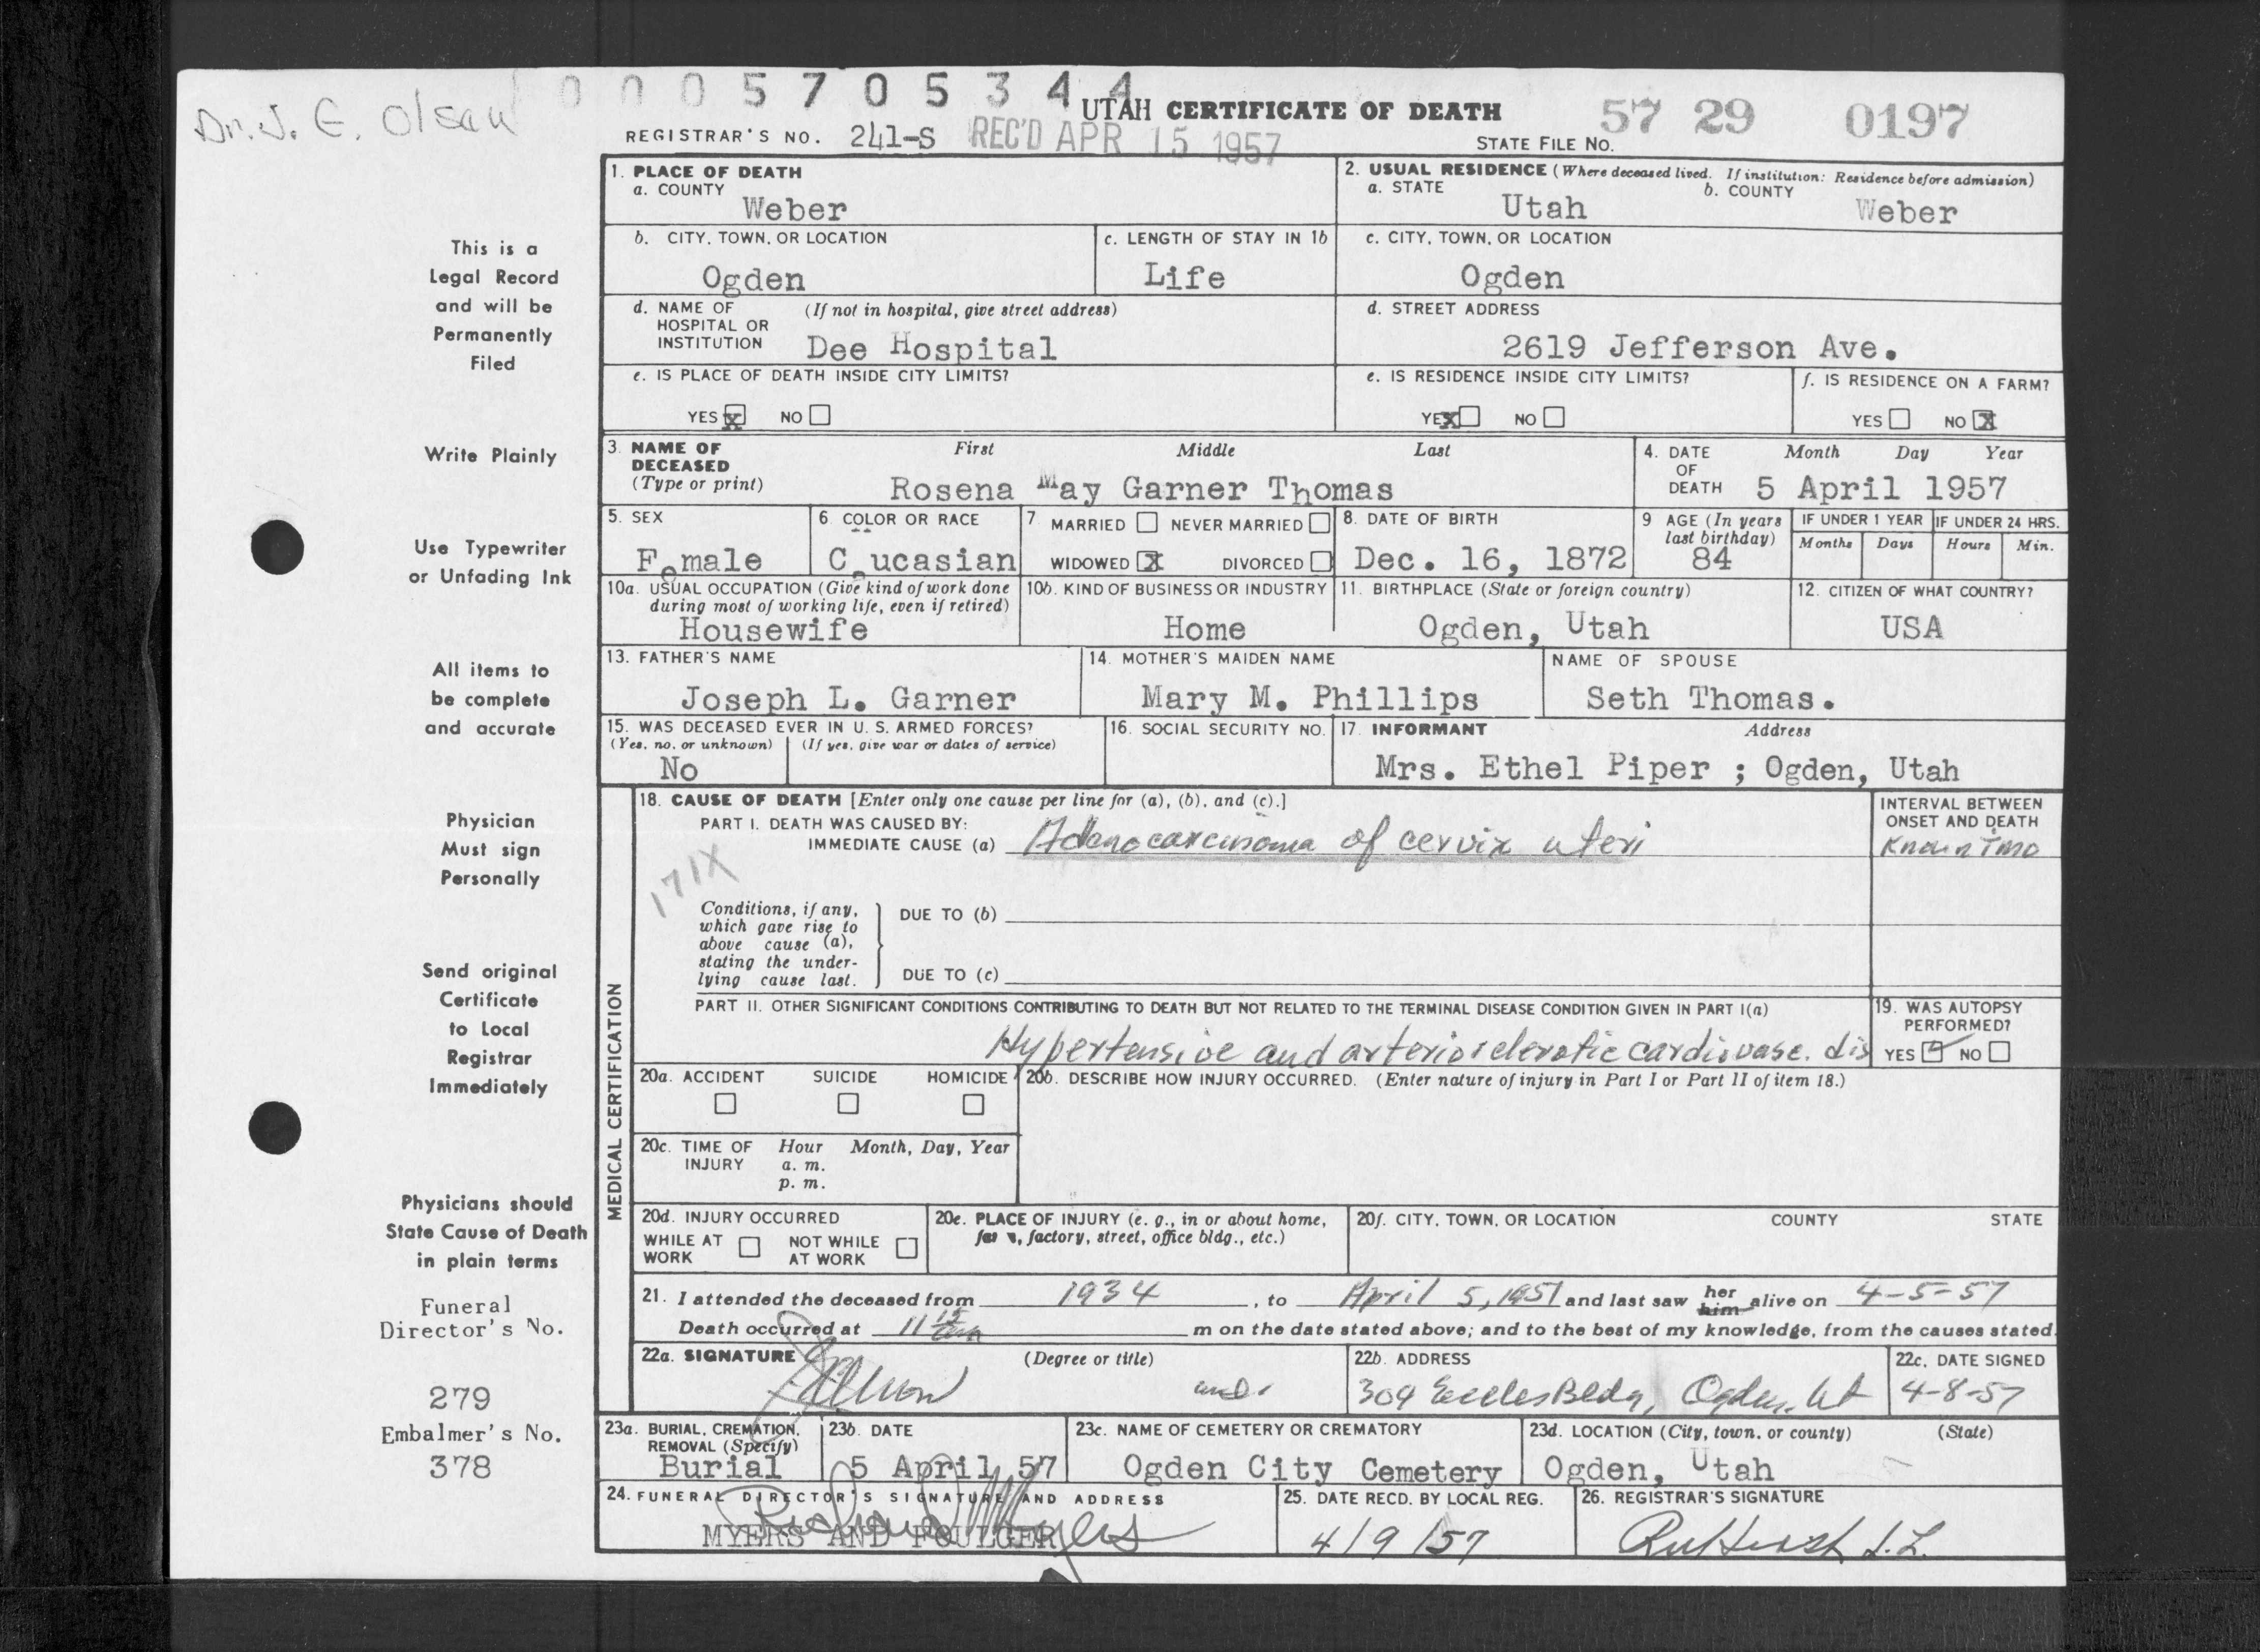 0005705344
Dr. J. E. Olsen
UTAH CERTIFICATE OF DEATH
57 29 0197
REGISTRAR'S NO. 241-S REC'D APR 15 1957
STATE FILE NO.
1. PLACE OF DEATH
a. COUNTY
Weber
2. USUAL RESIDENCE (Where deceased lived. If institution: Residence before admission)
a. STATE b. COUNTY
Utah Weber
b. CITY, TOWN, OR LOCATION
Ogden
c. LENGTH OF STAY IN 1b
Life
c. CITY, TOWN, OR LOCATION
Ogden
d. NAME OF HOSPITAL OR INSTITUTION (If not in hospital, give street address)
Dee Hospital
d. STREET ADDRESS
2619 Jefferson Ave.
e. IS PLACE OF DEATH INSIDE CITY LIMITS?
YES X NO
e. IS RESIDENCE INSIDE CITY LIMITS?
YES X NO
f. IS RESIDENCE ON A FARM?
YES NO X
3. NAME OF DECEASED (Type or print)
First Middle Last
Rosena May Garner Thomas
4. DATE OF DEATH Month Day Year
5 April 1957
5. SEX
Female
6 COLOR OR RACE
Caucasian
7 MARRIED NEVER MARRIED
WIDOWED X DIVORCED
8. DATE OF BIRTH
Dec. 16, 1872
9 AGE (In years last birthday)
84
IF UNDER 1 YEAR
Months Days
IF UNDER 24 HRS.
Hours Min.
10a. USUAL OCCUPATION (Give kind of work done
during most of working life, even if retired)
Housewife
10b. KIND OF BUSINESS OR INDUSTRY
Home
11. BIRTHPLACE (State or foreign country)
Ogden, Utah
12. CITIZEN OF WHAT COUNTRY?
USA
13. FATHER'S NAME
Joseph L. Garner
14. MOTHER'S MAIDEN NAME
Mary M. Phillips
NAME OF SPOUSE
Seth Thomas.
15. WAS DECEASED EVER IN U. S. ARMED FORCES?
(Yes, no, or unknown) (If yes, give war or dates of service)
No
16. SOCIAL SECURITY NO.
17. INFORMANT Address
Mrs. Ethel Piper ; Ogden, Utah
MEDICAL CERTIFICATION
18. CAUSE OF DEATH [Enter only one cause per line for (a), (b), and (c).]
PART I. DEATH WAS CAUSED BY:
IMMEDIATE CAUSE (a) Adenocarcinoma of cervix uteri
INTERVAL BETWEEN
ONSET AND DEATH
171X
Conditions, if any,
which gave rise to
above cause (a),
stating the under-
lying cause last.
DUE TO (b)
DUE TO (c)
PART II. OTHER SIGNIFICANT CONDITIONS CONTRIBUTING TO DEATH BUT NOT RELATED TO THE TERMINAL DISEASE CONDITION GIVEN IN PART I(a)
Hypertensive and arteriosclerotic cardiovasc. dis
19. WAS AUTOPSY
PERFORMED?
YES NO
20a. ACCIDENT SUICIDE HOMICIDE
20b. DESCRIBE HOW INJURY OCCURRED. (Enter nature of injury in Part I or Part II of item 18.)
20c. TIME OF INJURY Hour Month, Day, Year
a. m.
p. m.
20d. INJURY OCCURRED
WHILE AT WORK NOT WHILE AT WORK
20e. PLACE OF INJURY (e. g., in or about home,
farm, factory, street, office bldg., etc.)
20f. CITY, TOWN, OR LOCATION COUNTY STATE
21. I attended the deceased from 1934, to April 5, 1957 and last saw her him alive on 4-5-57
Death occurred at 11 15 m on the date stated above; and to the best of my knowledge, from the causes stated.
22a. SIGNATURE (Degree or title)
22b. ADDRESS
304 Eccles Bldg, Ogden, Ut
22c. DATE SIGNED
4-8-57
23a. BURIAL, CREMATION,
REMOVAL (Specify)
Burial
23b. DATE
5 April 57
23c. NAME OF CEMETERY OR CREMATORY
Ogden City Cemetery
23d. LOCATION (City, town, or county) (State)
Ogden, Utah
24. FUNERAL DIRECTOR'S SIGNATURE AND ADDRESS
MYERS AND FOULGER
25. DATE RECD. BY LOCAL REG.
4/9/57
26. REGISTRAR'S SIGNATURE
This is a
Legal Record
and will be
Permanently
Filed
Write Plainly
Use Typewriter
or Unfading Ink
All items to
be complete
and accurate
Physician
Must sign
Personally
Send original
Certificate
to Local
Registrar
Immediately
Physicians should
State Cause of Death
in plain terms
Funeral
Director's No.
279
Embalmer's No.
378